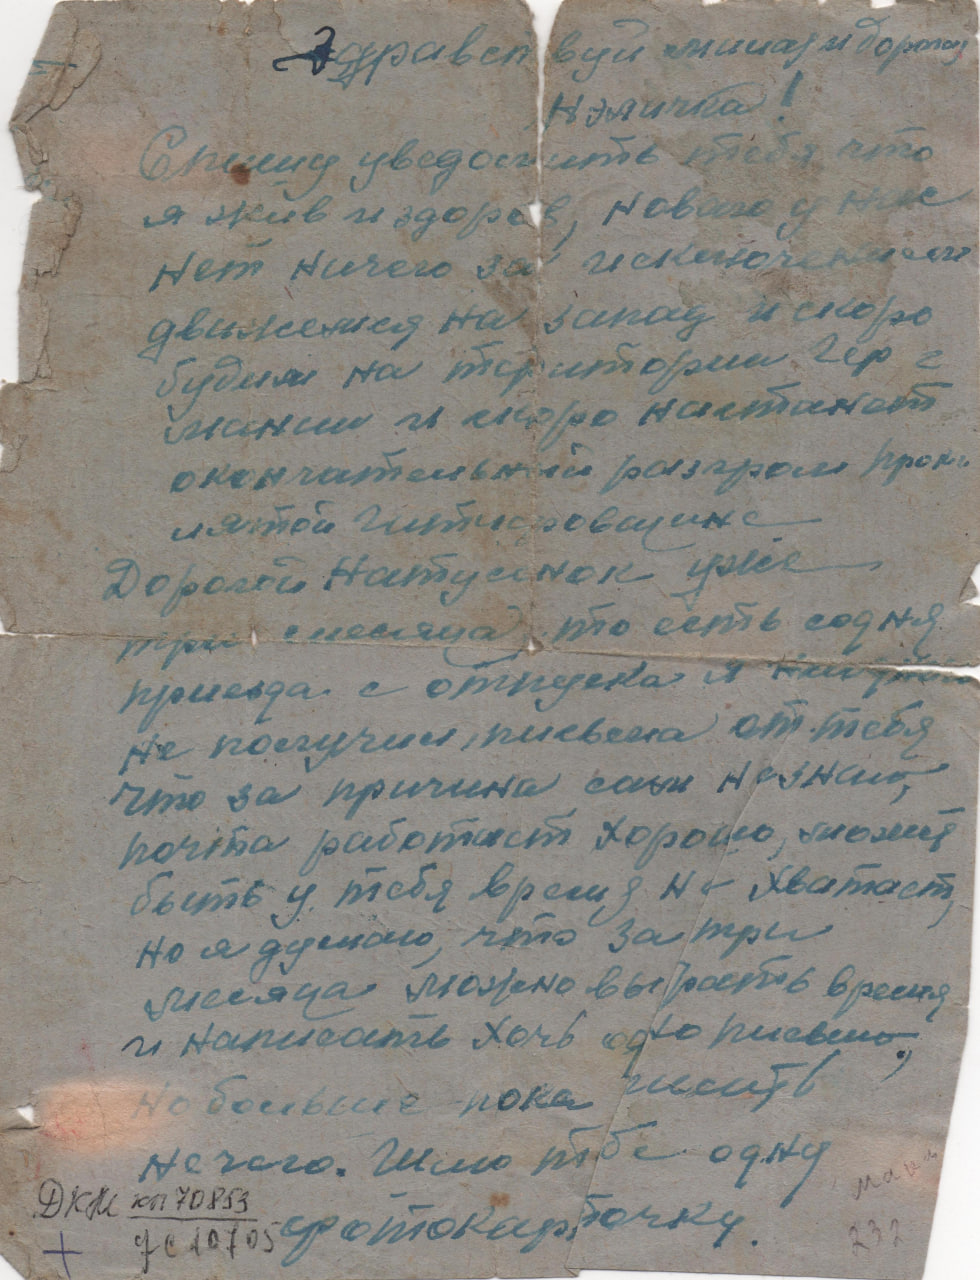 Здравствуй милая и дорогая
Спишу уведомить тебя что
я жив и здоров, новаго у нас
нет ничего за исключением
движемся на запад и скоро
будим на територии Гер
мании и скоро настанет
окончательний разгром прок
лятой Гитлеровщине
Дорогой Натусинок уже
три месяца, то есть содня
приезда с отпуска я
не получил письма от тебя
что за причина сам незнаю,
почта работает хорошо, может
быть у тебя время не хватает,
но я думаю, что за три
месяца можно выбрать время
и написать хочь одно письмо,
но больше пока писать
нечего. Шлю тебе одну
фотокарточку.
ДКМ кп 70853
232